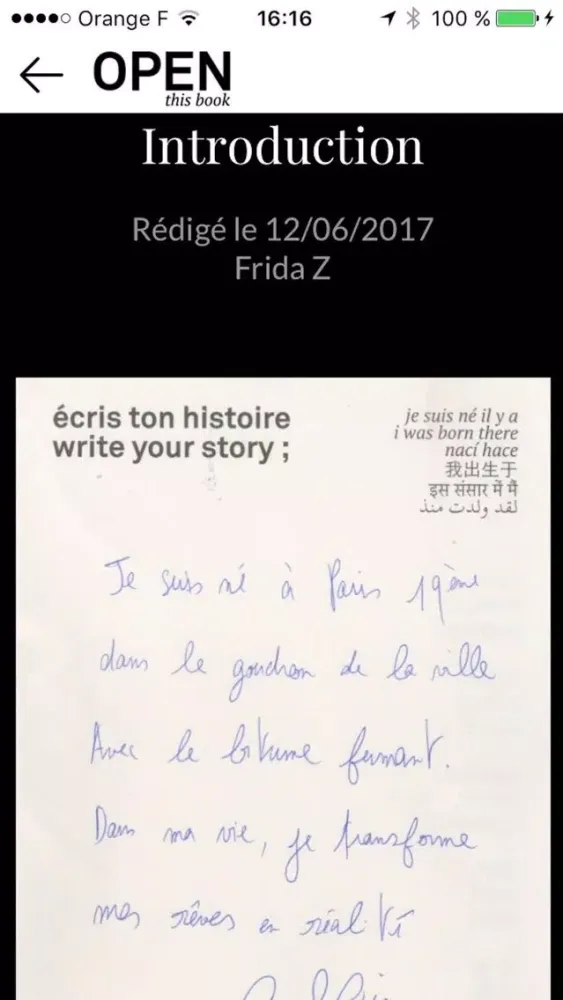 Orange F 16:16 100 %
OPEN
this book
Introduction
Rédigé le 12/06/2017
Frida Z
écris ton histoire
write your story ;
je suis né il y a
i was born there
nací hace
我出生于
इस संसार में मैं
لقد ولدت منذ
Je suis né à Paris 19ème
dans le goudron de la ville
Avec le bitume fumant.
Dans ma vie, je transforme
mes rêves en réalité